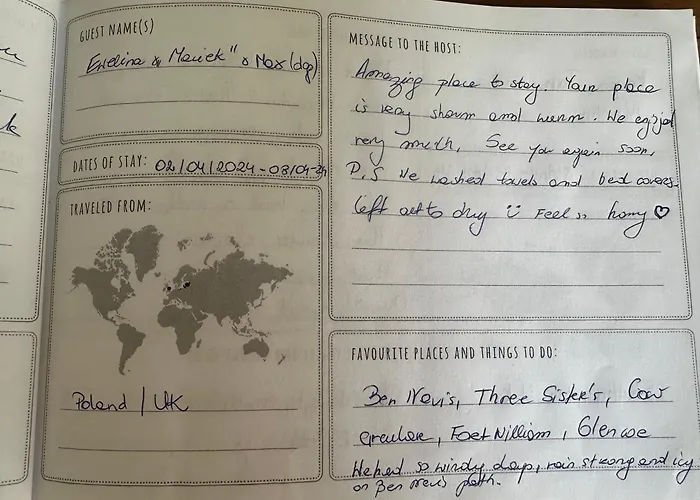 GUEST NAME(S)
Ewelina & Maciek" & Max (dog)
DATES OF STAY: 02/04/2024 - 08/04-24
TRAVELED FROM:
Poland / UK
MESSAGE TO THE HOST:
Amazing place to stay. Your place
is very sharm and warm. We enjoyed
very much, See you again soon,
P,S We washed towels and bed covers
left out to dry ü Feel so homy ♡
FAVOURITE PLACES AND THINGS TO DO:
Ben Nevis, Three Sister's, Cow
, Fort William, Glencoe
We had so windy days, rain strong and icy
on Ben Nevis path.